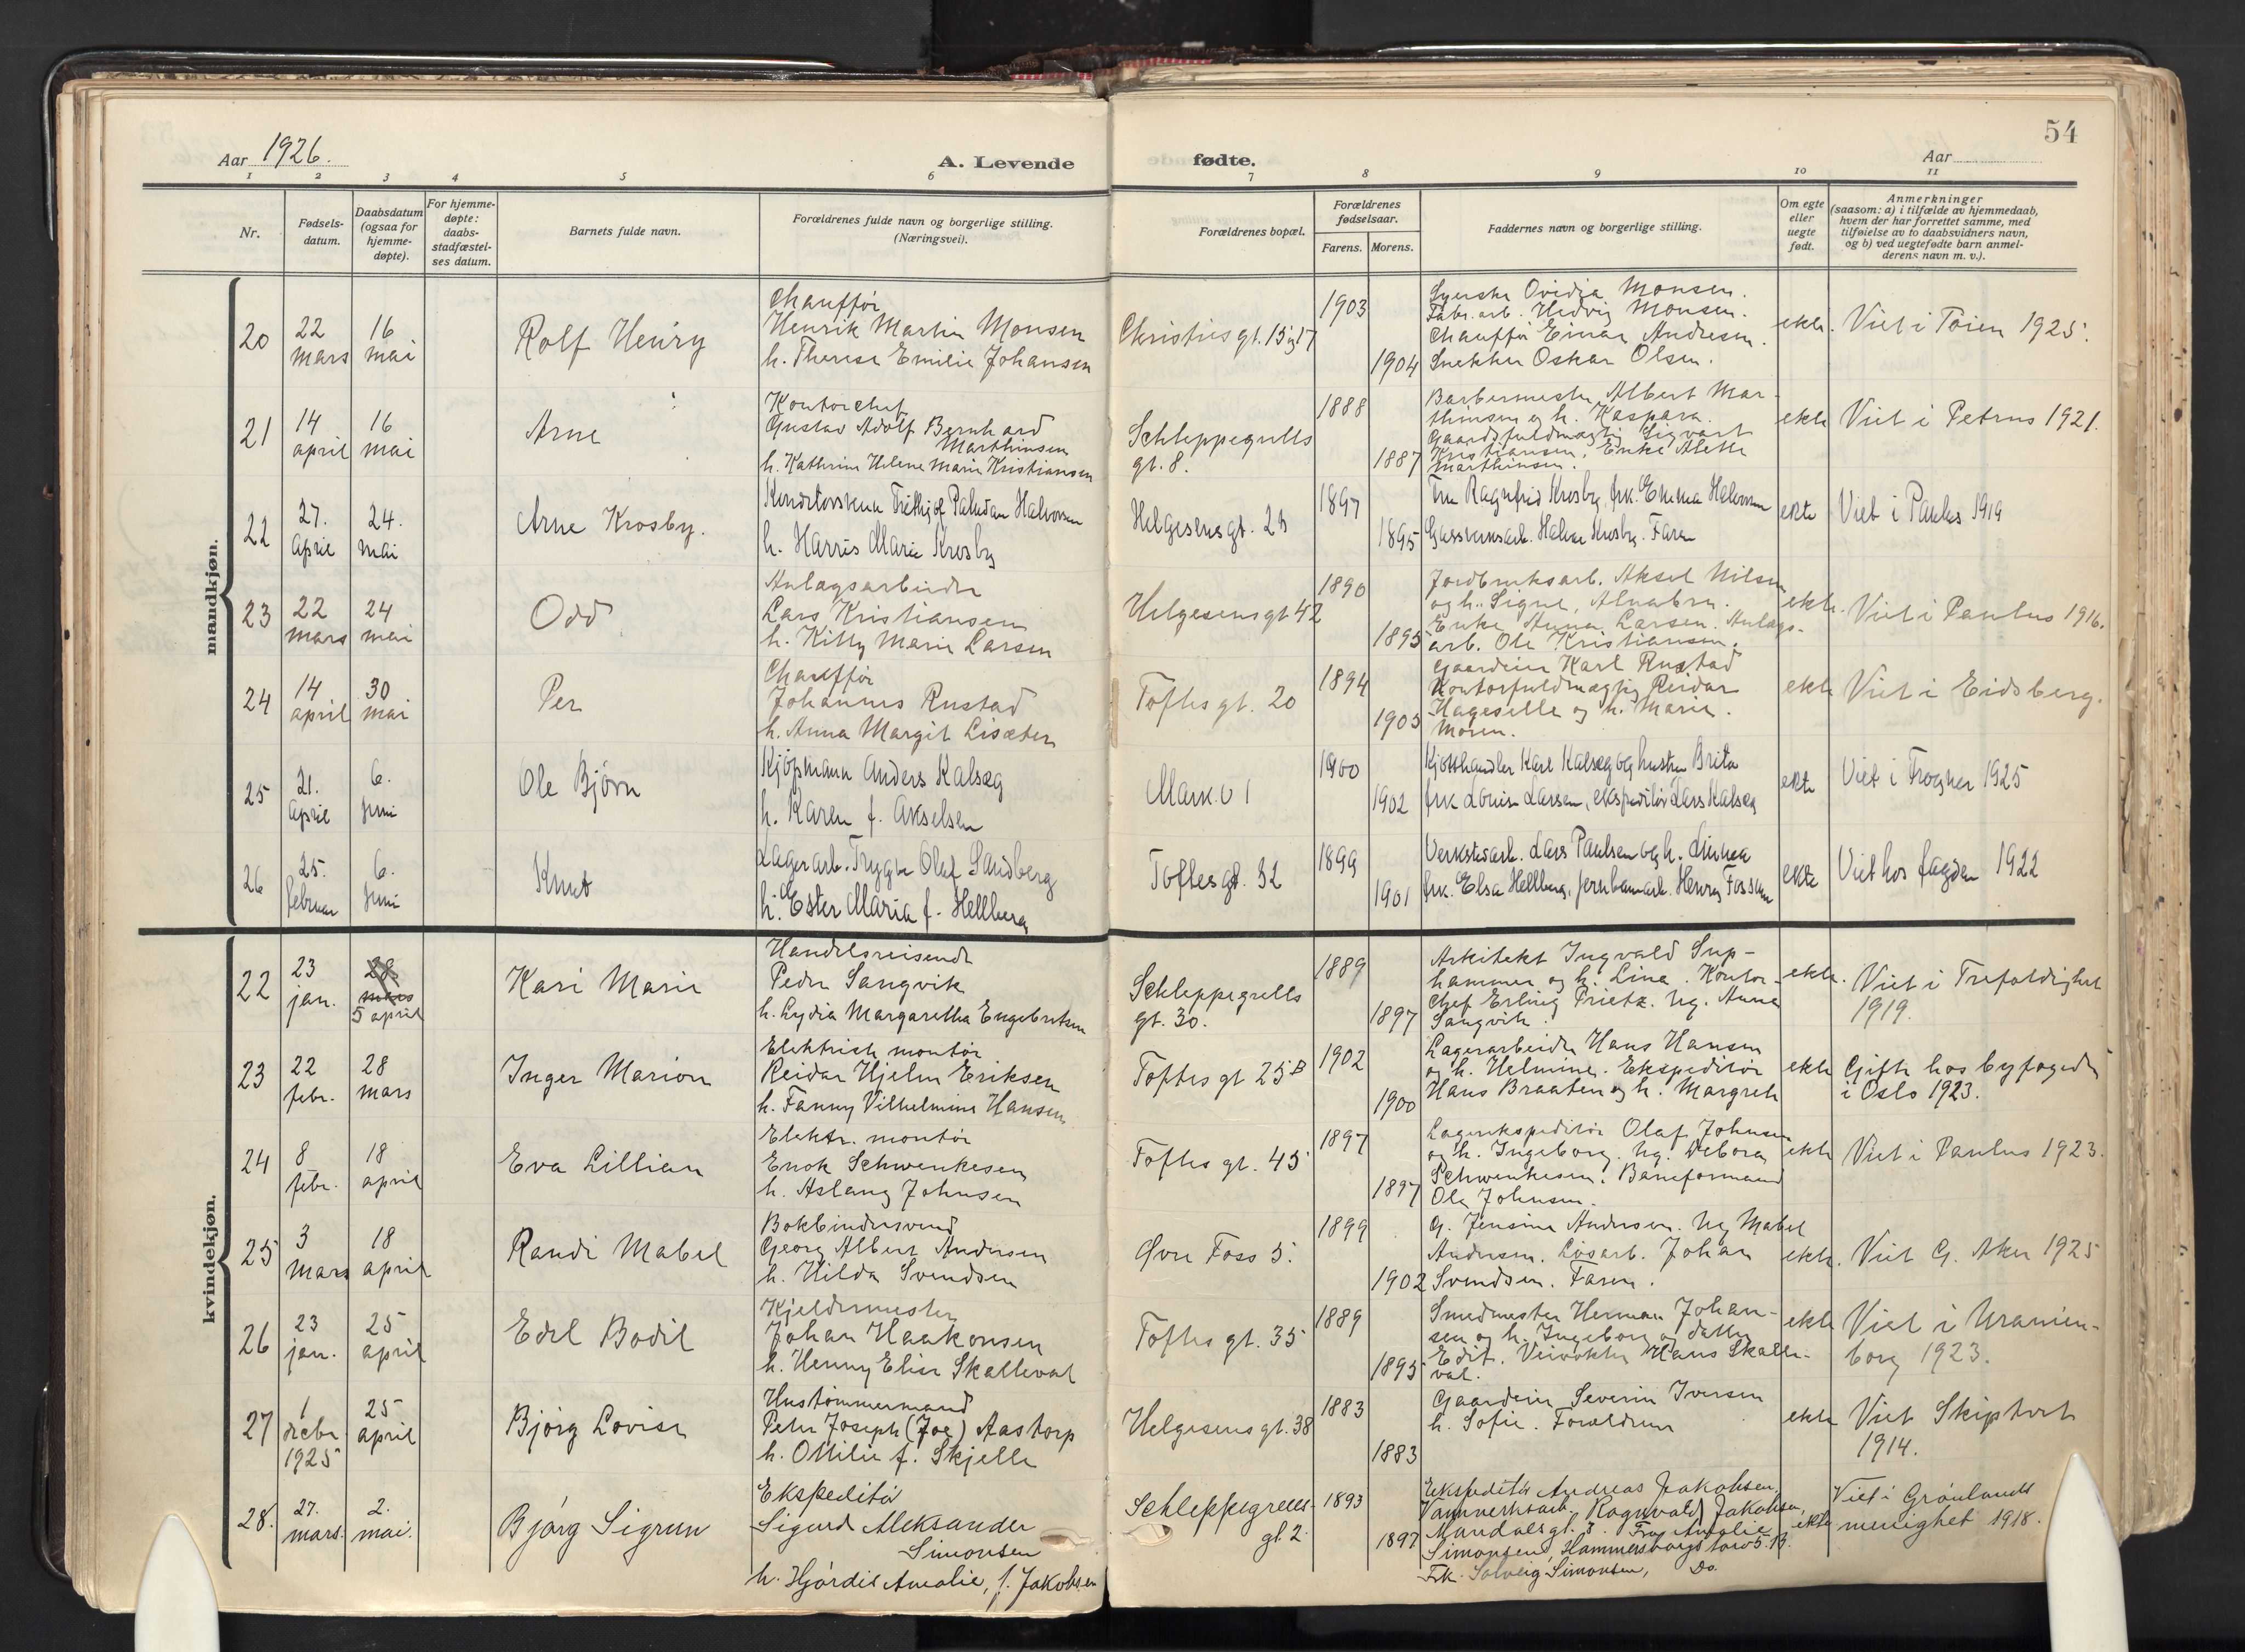 54
Aar 1926.
A. Levende
fødte.
Aar
1
2
3
4
5
6
7
8
9
10
11
Nr.
Fødsels-
datum.
Daabsdatum
(ogsaa for
hjemme-
døpte).
For hjemme-
døpte:
daabs-
stadfæstel-
ses datum.
Barnets fulde navn.
Forældrenes fulde navn og borgerlige stilling.
(Næringsvei).
Forældrenes bopæl.
Forældrenes
fødselsaar.
Farens.
Morens.
Faddernes navn og borgerlige stilling.
Om egte
eller
uegte
født.
Anmerkninger
(saasom: a) i tilfælde av hjemmedaab,
hvem der har forrettet samme, med
tilføielse av to daabsvidners navn,
og b) ved uegtefødte barn anmel-
derens navn m. v.).
mandkjøn.
20
22
mars
16
mai
Rolf Henry
Chauffør
Henrik Martin Monsen
h. Therese Emilie Johansen
Christies gt. 15, 17
1903
1904
Syerske Ovidia Monsen.
Fabr.arb. Hedvig Monsen.
Chauffør Einar Andresen.
Snekker Oskar Olsen.
ekte.
Viet i Tøien 1925.
21
14
april
16
mai
Arne
Kontorchef
Gustav Adolf Bernhard
Marthinsen
h. Kathrine Helene Marie Kristiansen
Schleppegrells
gt. 8.
1888
1887
Barbermester Albert Mar-
thinsen og h. Kaspara.
Gaardsfuldmægtig Sigvart
Kristiansen, Enke Alette
Marthinsen.
ekte
Viet i Petrus 1921.
22
27.
april
24.
mai
Arne Krosby.
Kenditorsvenn Fritjof Paludan Halvorsen
h. Harris Marie Krosby
Helgesensgt. 2
1897
1895
Fru Ragnfrid Krosby, frk. Emma Halvorsen
Gassverksarb. Halvor Krosby. Faren
ekte
Viet i Paulus 1919
23
22
mars
24
mai
Odd
Anlægsarbeider
Lars Kristiansen
h. Kitty Marie Larsen
Helgesensgt 42
1890
1895
Jordbruksarb. Aksel Nilsen
og h. Signe, Alnabru.
Enke Anna Larsen. Anlægs-
arb. Ole Kristiansen.
ekte.
Viet i Paulus 1916.
24
14
april
30
mai
Per
Chauffør
Johannes Rustad
h. Anna Margit Lisæter
Toftes gt. 20
1894
1903
Gaardeier Karl Rustad
Kontorfuldmægtig Reidar
Hageselle og h. Marie.
Moren.
ekte
Viet i Eidsberg.
25
21.
april
6.
juni
Ole Bjørn
Kjøpmann Anders Kalsæg
h. Karen f. Akselsen
Markv 1
1900
1902
Kjøtthandler Karl Kalsæg og hustru Brita
frk Louise Larsen, ekspeditør Lars Kalsæg
ekte
Viet i Frogner 1925
26
25.
februar
6.
juni
Knut
Lagerarb. Trygve Olaf Sandberg
h. Ester Maria f. Hellberg
Toftesgt. 32
1899
1901
Verkstedarb. Lars Paulsen og h. Linnea
frk. Elsa Hellberg, jernbanearb. Henry Fossum
ekte
Viet hos fogden 1922
kvindekjøn.
22
23
jan.
28
mars
5 april
Kari Marie
Handelsreisende
Peder Sangvik
h. Lydia Margaretha Engebretsen
Schleppegrells
gt. 30.
1889
1897
Arkitekt Ingvald Sup-
hammer og h. Lina. Kontor-
chef Erling Frietz. Ug. Anna
Sangvik.
ekte.
Viet i Trefoldighet
1919.
23
22
febr.
28
mars
Inger Marion
Elektrisk montør
Reidar Hjelm Eriksen
h. Fanny Vilhelmine Hansen
Toftes gt 25 B
1902
1900
Lagerarbeider Hans Hansen
og h. Helmine. Ekspeditør
Hans Braaten og h. Margrete
ekte
Gifte hos byfogden
i Oslo 1923.
24
8
febr.
18
april
Eva Lillian
Elektr. montør
Enok Schwenkesen
h. Aslaug Johnsen
Toftes gt. 45
1897
1897
Lagerekspeditør Olaf Johnsen
og h. Ingeborg. Ug. Debora
Schwenkesen. Baneformand
Ole Johnsen.
ekte
Viet i Paulus 1923.
25
3
mars
18
april
Randi Mabel
Bokbindersvend
Georg Albert Andersen
h. Hilda Svendsen
Øvre Foss 5.
1899
1902
G. Jensine Andersen. Ug Mabel
Andersen. Løsarb. Johan
Svendsen. Faren.
ekte.
Viet G. Aker 1925
26
23
jan.
25
april
Edel Bodil
Kjeldermester
Johan Haakonsen
h. Henny Elise Skallevat
Toftes gt. 35
1889
1895
Smedmester Herman Johan-
sen og h. Ingeborg og datter
Edit. Veivokter Hans Skalle-
vat.
ekte
Viet i Uranien-
borg 1923.
27
1
decbr
1925
25
april
Bjørg Lovise
Hustømmermand
Peter Joseph (Joe) Aastorp
h. Ottilie f. Skjelle
Helgesens gt. 38
1883
1883
Gaardeier Severin Iversen
h. Sofie. Forældrene
ekte
Viet Skiptvet
1914.
28.
27.
mars.
2.
mai.
Bjørg Sigrun
Ekspeditør
Sigurd Aleksander
Simonsen
h. Hjørdis Amalie, f. Jakobsen
Schleppegrells-
gt. 2.
1893
1897
Ekspeditør Andreas Jakobsen,
Vannverksarb. Ragnvald Jakobsen,
Mandalsgt. 3. Fru Amalie
Simonsen, Hammersborgs torv 5. B.
Frk. Solveig Simonsen, Do.
ekte
Viet i Grønlands
menighet 1918.